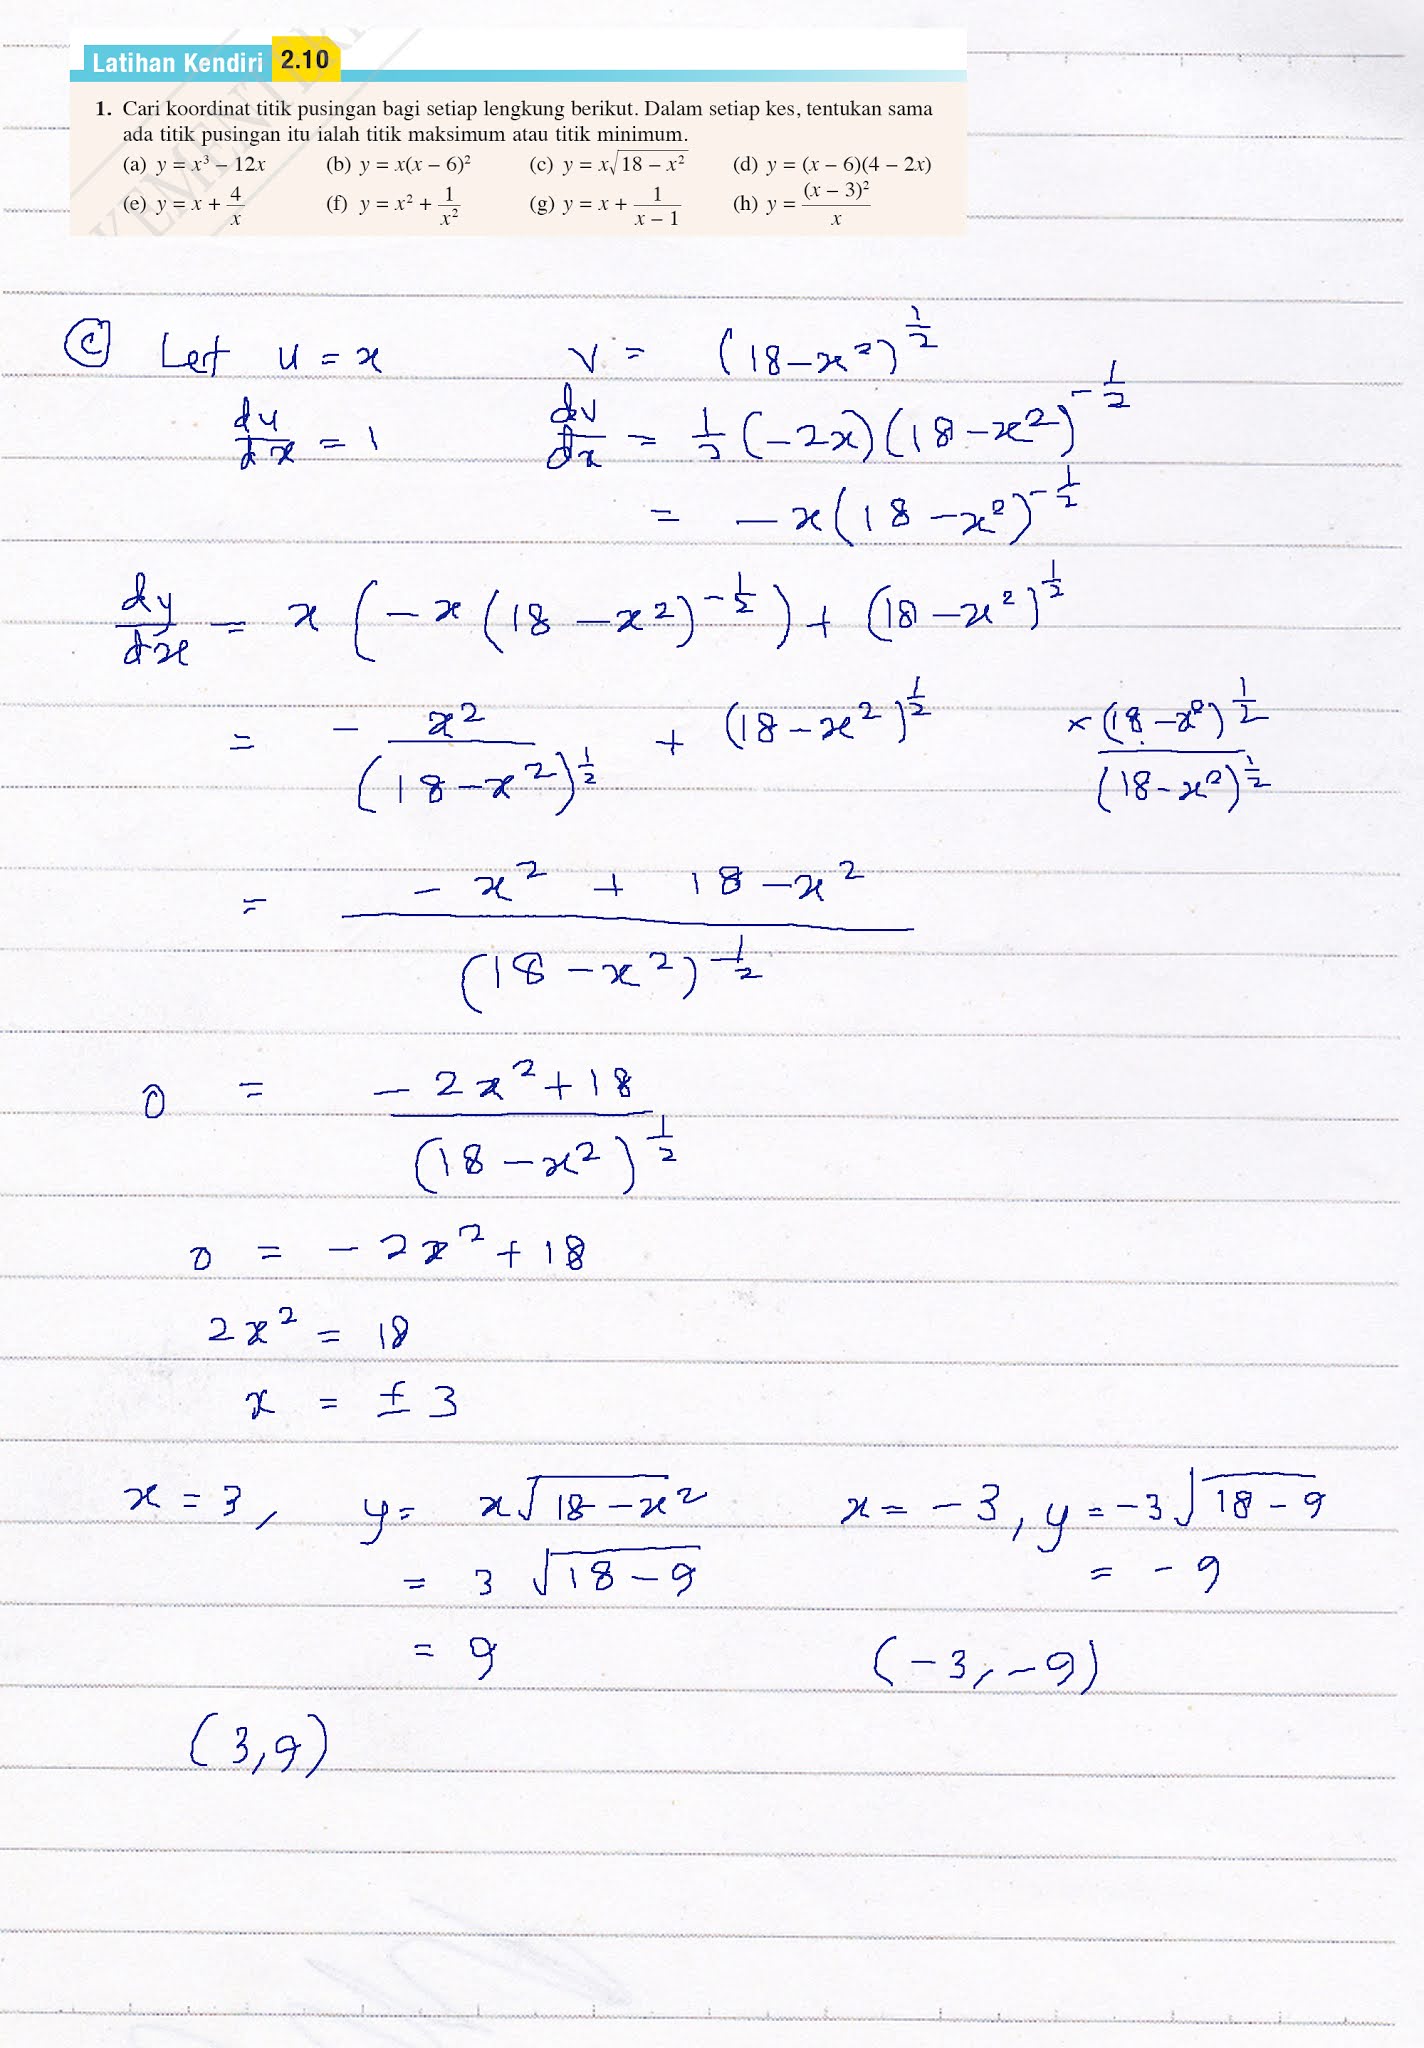 Latihan Kendiri 2.10
1. Cari koordinat titik pusingan bagi setiap lengkung berikut. Dalam setiap kes, tentukan sama
ada titik pusingan itu ialah titik maksimum atau titik minimum.
(a) y = x³ – 12x (b) y = x(x – 6)² (c) y = x√(18 – x²) (d) y = (x – 6)(4 – 2x)
(e) y = x + 4/x (f) y = x² + 1/x² (g) y = x + 1/(x – 1) (h) y = (x – 3)²/x
KEMENTERI
ⓒ Let u = x v = (18-x²)^(1/2)
du/dx = 1 dv/dx = 1/2 (-2x)(18-x²)^(-1/2)
= -x(18-x²)^(-1/2)
dy/dx = x(-x(18-x²)^(-1/2)) + (18-x²)^(1/2)
= - x²/(18-x²)^(1/2) + (18-x²)^(1/2) × (18-x²)^(1/2)/(18-x²)^(1/2)
= (-x² + 18-x²)/(18-x²)^(1/2)
0 = (-2x²+18)/(18-x²)^(1/2)
0 = -2x²+18
2x² = 18
x = ±3
x = 3, y = x√(18-x²) x = -3, y = -3√(18-9)
= 3√(18-9) = -9
= 9 (-3,-9)
(3,9)